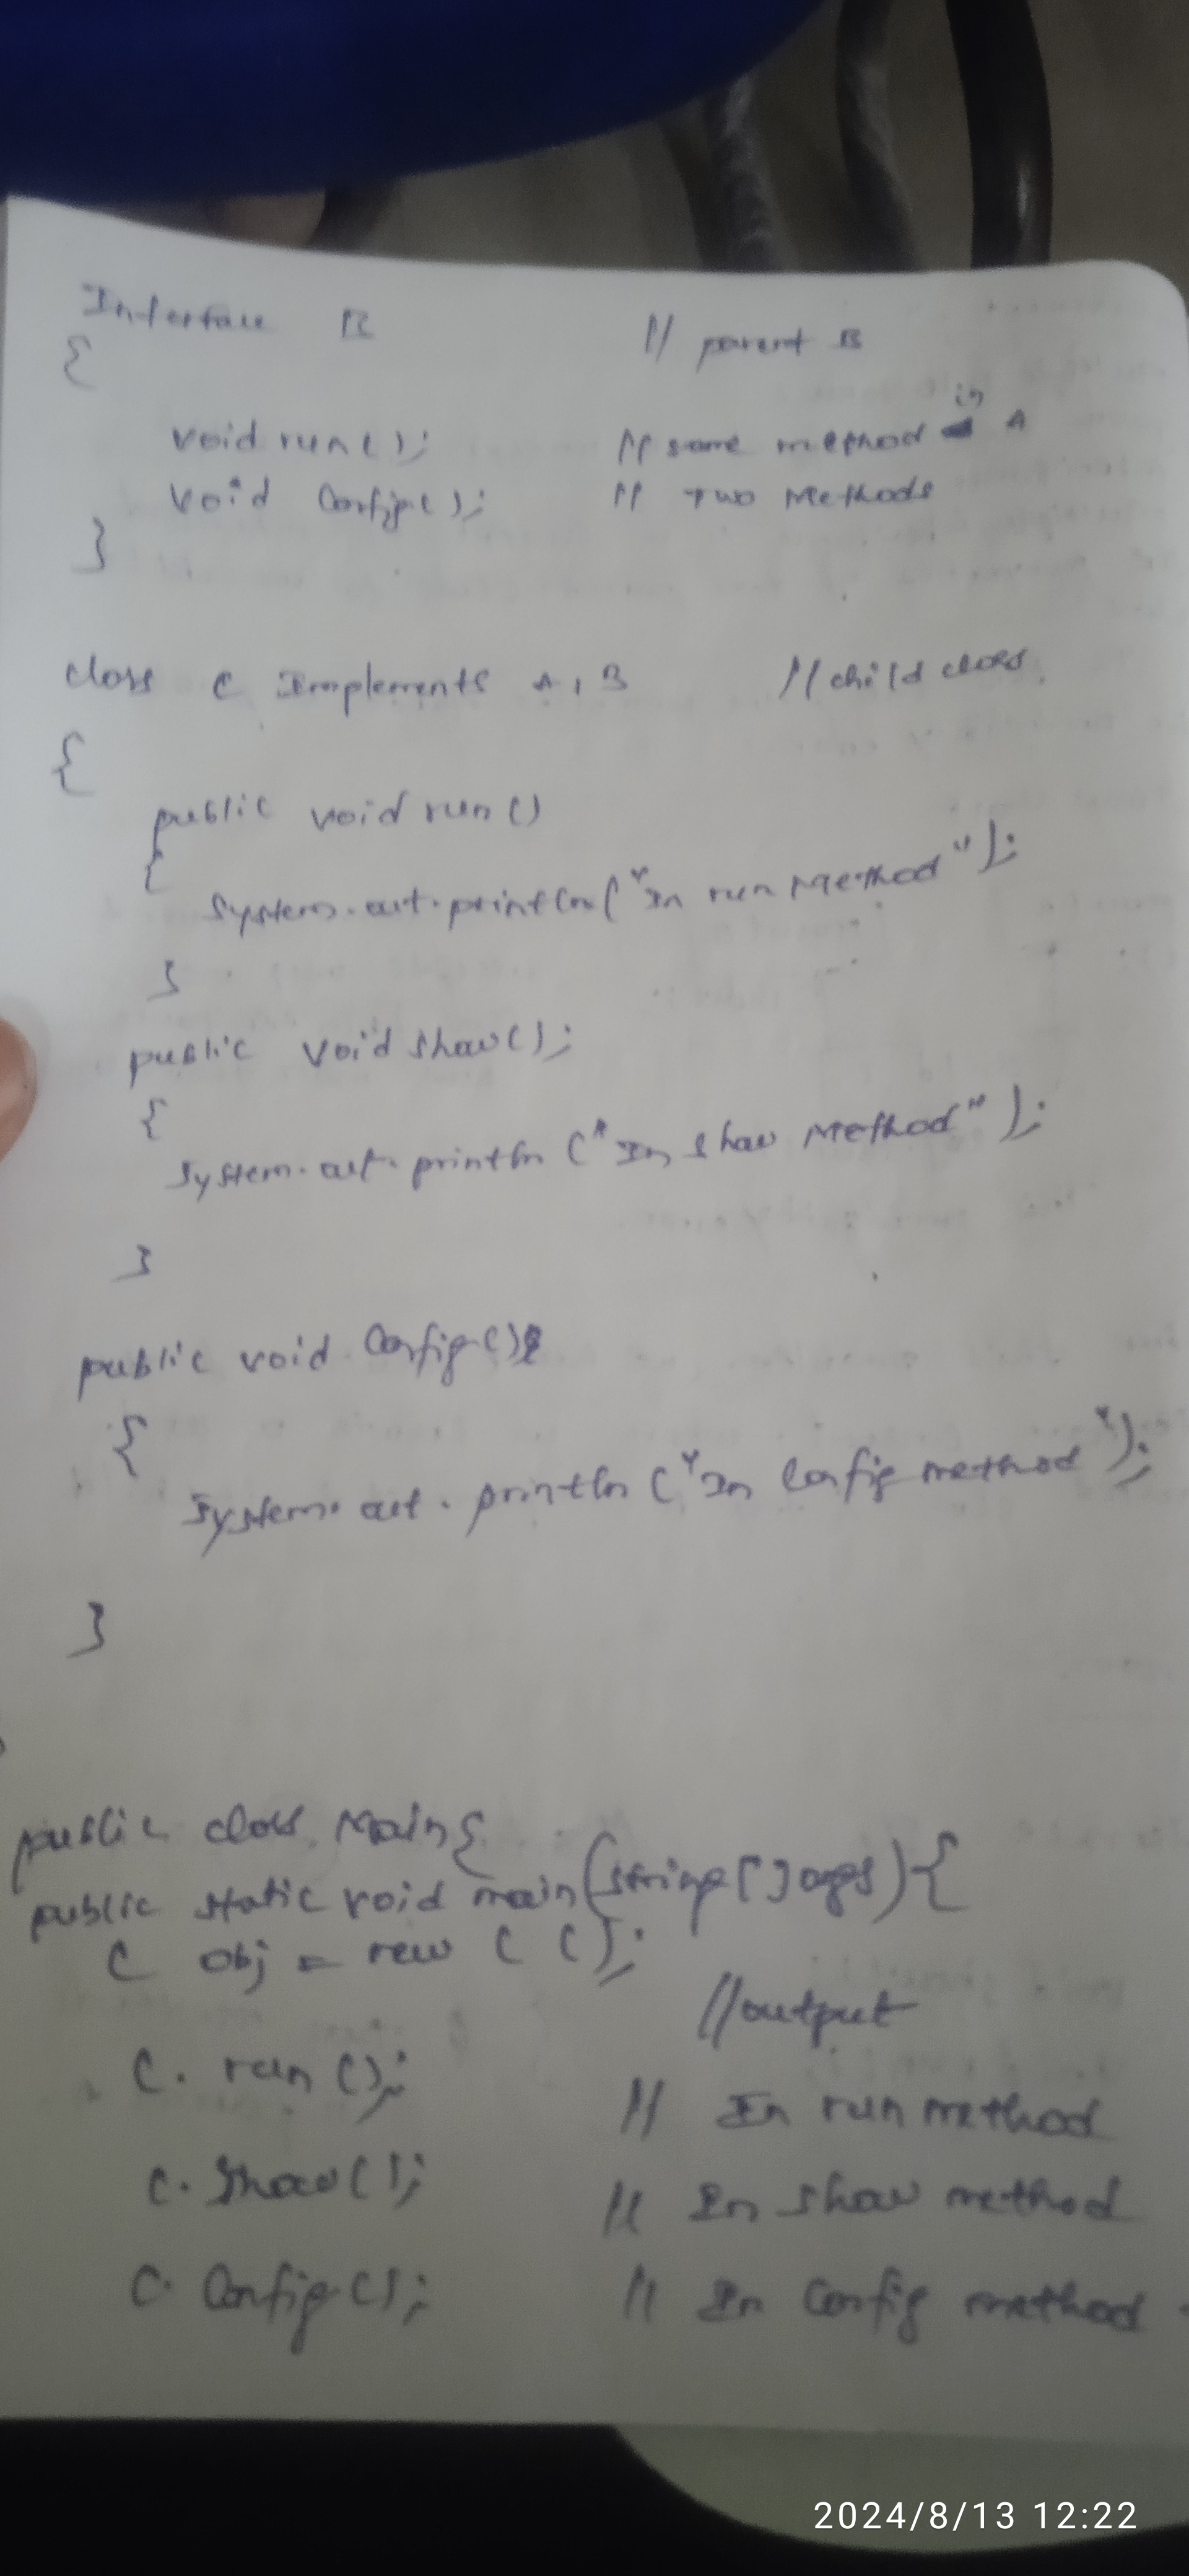 Interface B // parent B
{
void run(); // same method in A
void Config(); // Two Methods
}
class C Implements A, B // child class
{
public void run()
{
System.out.println("In run Method");
}
public void show();
{
System.out.println("In show Method");
}
public void Config()
{
System.out.println("In Config method");
}
public class Main{
public static void main(string[]args){
C obj = new C();
//output
C. run(); // In run method
C. Show(); // In show method
C. Config(); // In Config method
2024/8/13 12:22